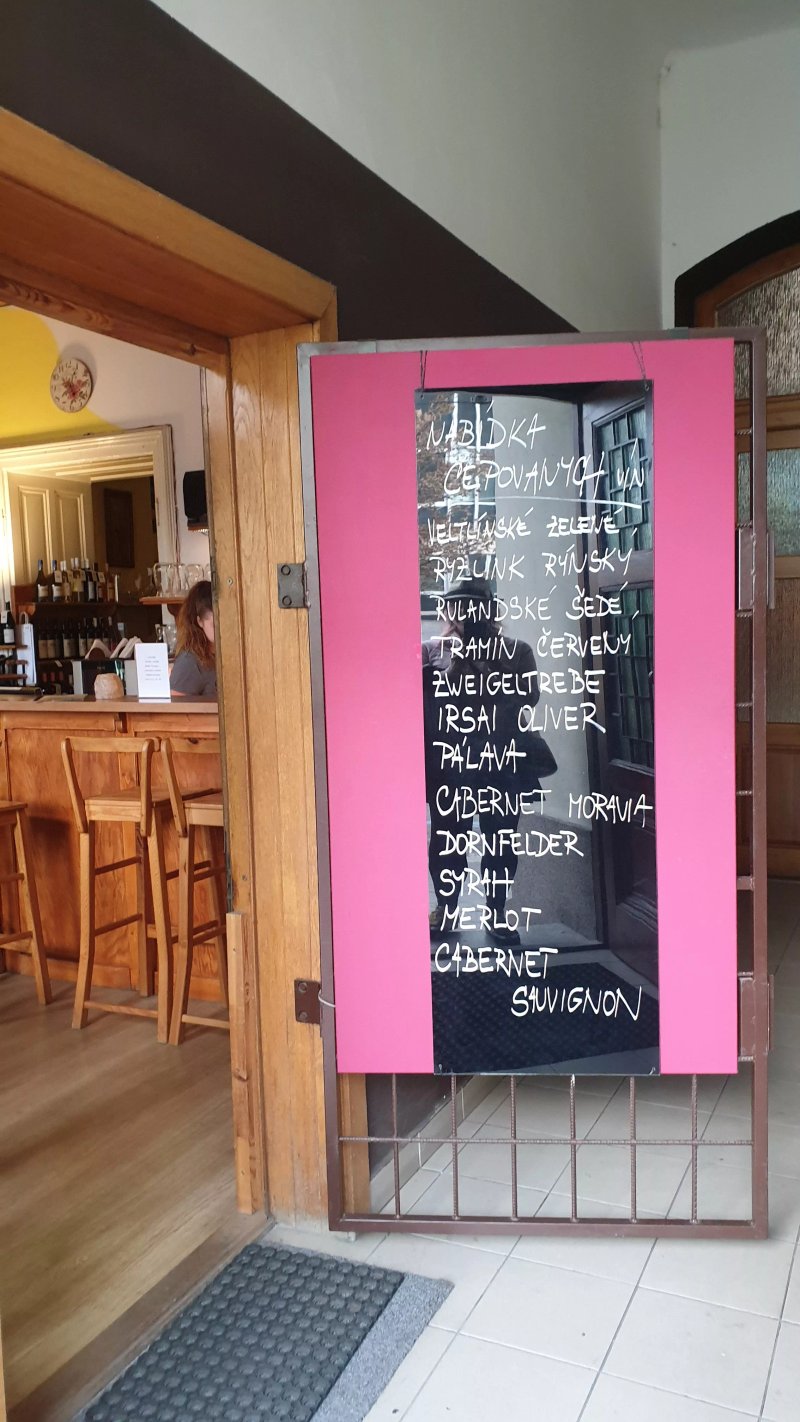 NABÍDKA
ČEPOVANÝCH VÍN
VELTLÍNSKÉ ZELENÉ
RYZLINK RÝNSKÝ
RULANDSKÉ ŠEDÉ
TRAMÍN ČERVENÝ
ZWEIGELTREBE
IRSAI OLIVER
PÁLAVA
CABERNET MORAVIA
DORNFELDER
SYRAH
MERLOT
CABERNET
SAUVIGNON